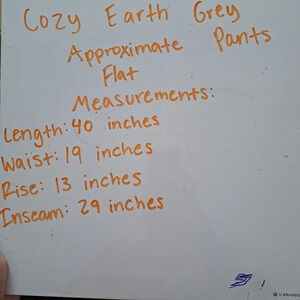 Cozy Earth Grey
Approximate Pants
Flat
Measurements:
Length: 40 inches
Waist: 19 inches
Rise: 13 inches
Inseam: 29 inches
U BRANDS